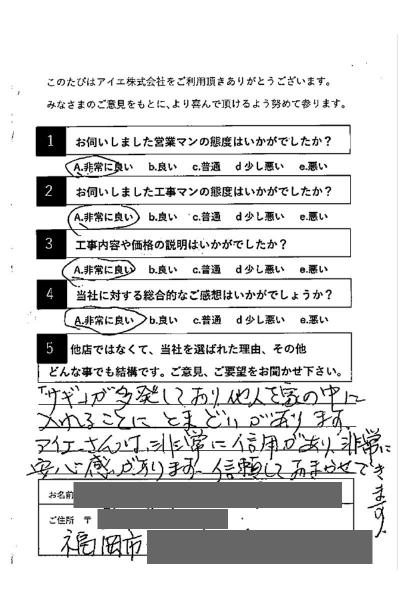 このたびはアイエ株式会社をご利用頂きありがとうございます。
みなさまのご意見をもとに、より喜んで頂けるよう努めて参ります。
1 お伺いしました営業マンの態度はいかがでしたか？
A.非常に良い b.良い c.普通 d 少し悪い e.悪い
2 お伺いしました工事マンの態度はいかがでしたか？
A.非常に良い b.良い c.普通 d 少し悪い e.悪い
3 工事内容や価格の説明はいかがでしたか？
A.非常に良い b.良い c.普通 d 少し悪い e.悪い
4 当社に対する総合的なご感想はいかがでしょうか？
A.非常に良い b.良い c.普通 d 少し悪い e.悪い
5 他店ではなくて、当社を選ばれた理由、その他
どんな事でも結構です。ご意見、ご要望をお聞かせ下さい。
「サギ」が多発しており他人を家の中に
入れることにとまどいがあります。
アイエーさんは、非常に信用があり、非常に
安心感があります。信頼しておまかせで
きます。
お名前
ご住所 〒
福岡市